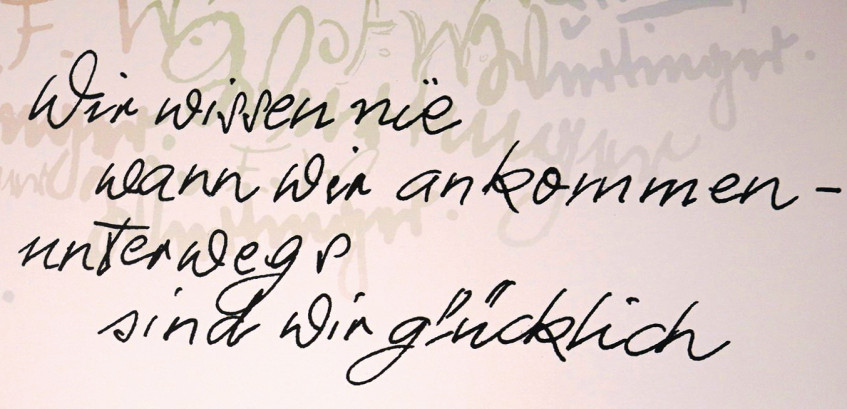 Wir wissen nie
wann wir ankommen -
unterwegs
sind wir glücklich